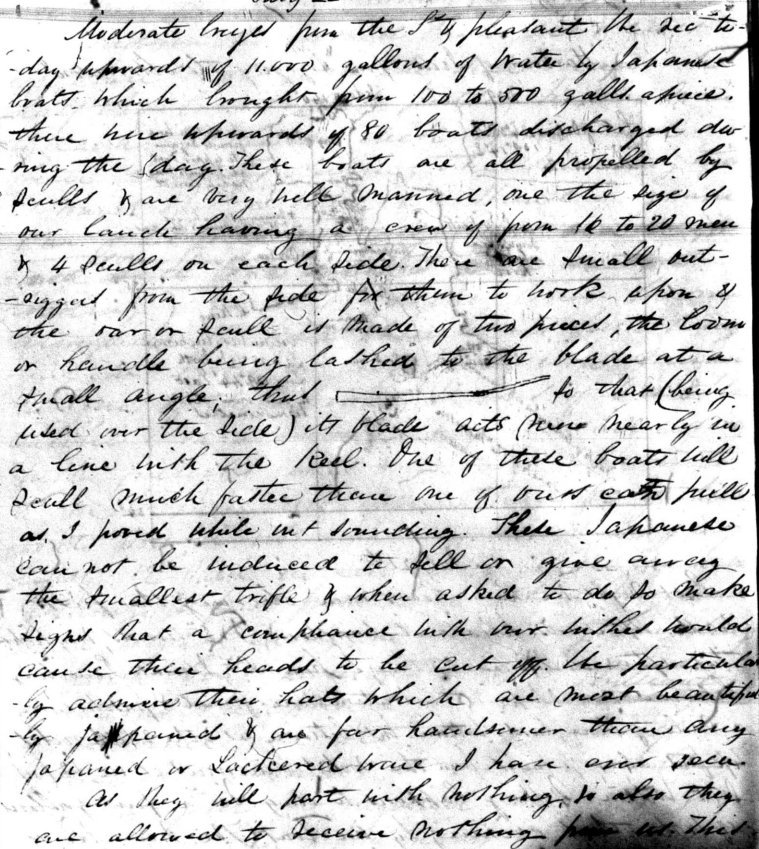 Moderate breezes from the Sd & pleasant We rec to-
-day upwards of 11.000 gallons of Water by Japanese
boats. which brought from 100 to 500 galls apiece.
there were upwards of 80 boats discharged du-
-ring the day. These boats are all propelled by
Sculls & are very well manned, one the size of
our launch having a crew of from 16 to 20 men
& 4 Sculls on each side. There are small out-
-riggers from the side for them to work upon &
the oar or scull is made of two pieces, the loom
or handle being lashed to the blade at a
small angle; thus so that (being
used over the side) its blade acts more nearly in
a line with the Keel. One of these boats will
scull much faster than one of ours can pull
as I proved while out sounding. These Japanese
can not be induced to sell or give away
the smallest trifle & when asked to do so make
signs that a compliance with our wishes would
cause their heads to be cut off. We particular
-ly admire their hats which are most beautiful
-ly japaned & are far handsomer than any
japaned or Lackered ware I have ever seen.
As they will part with nothing, so also they
are allowed to receive nothing from us. This